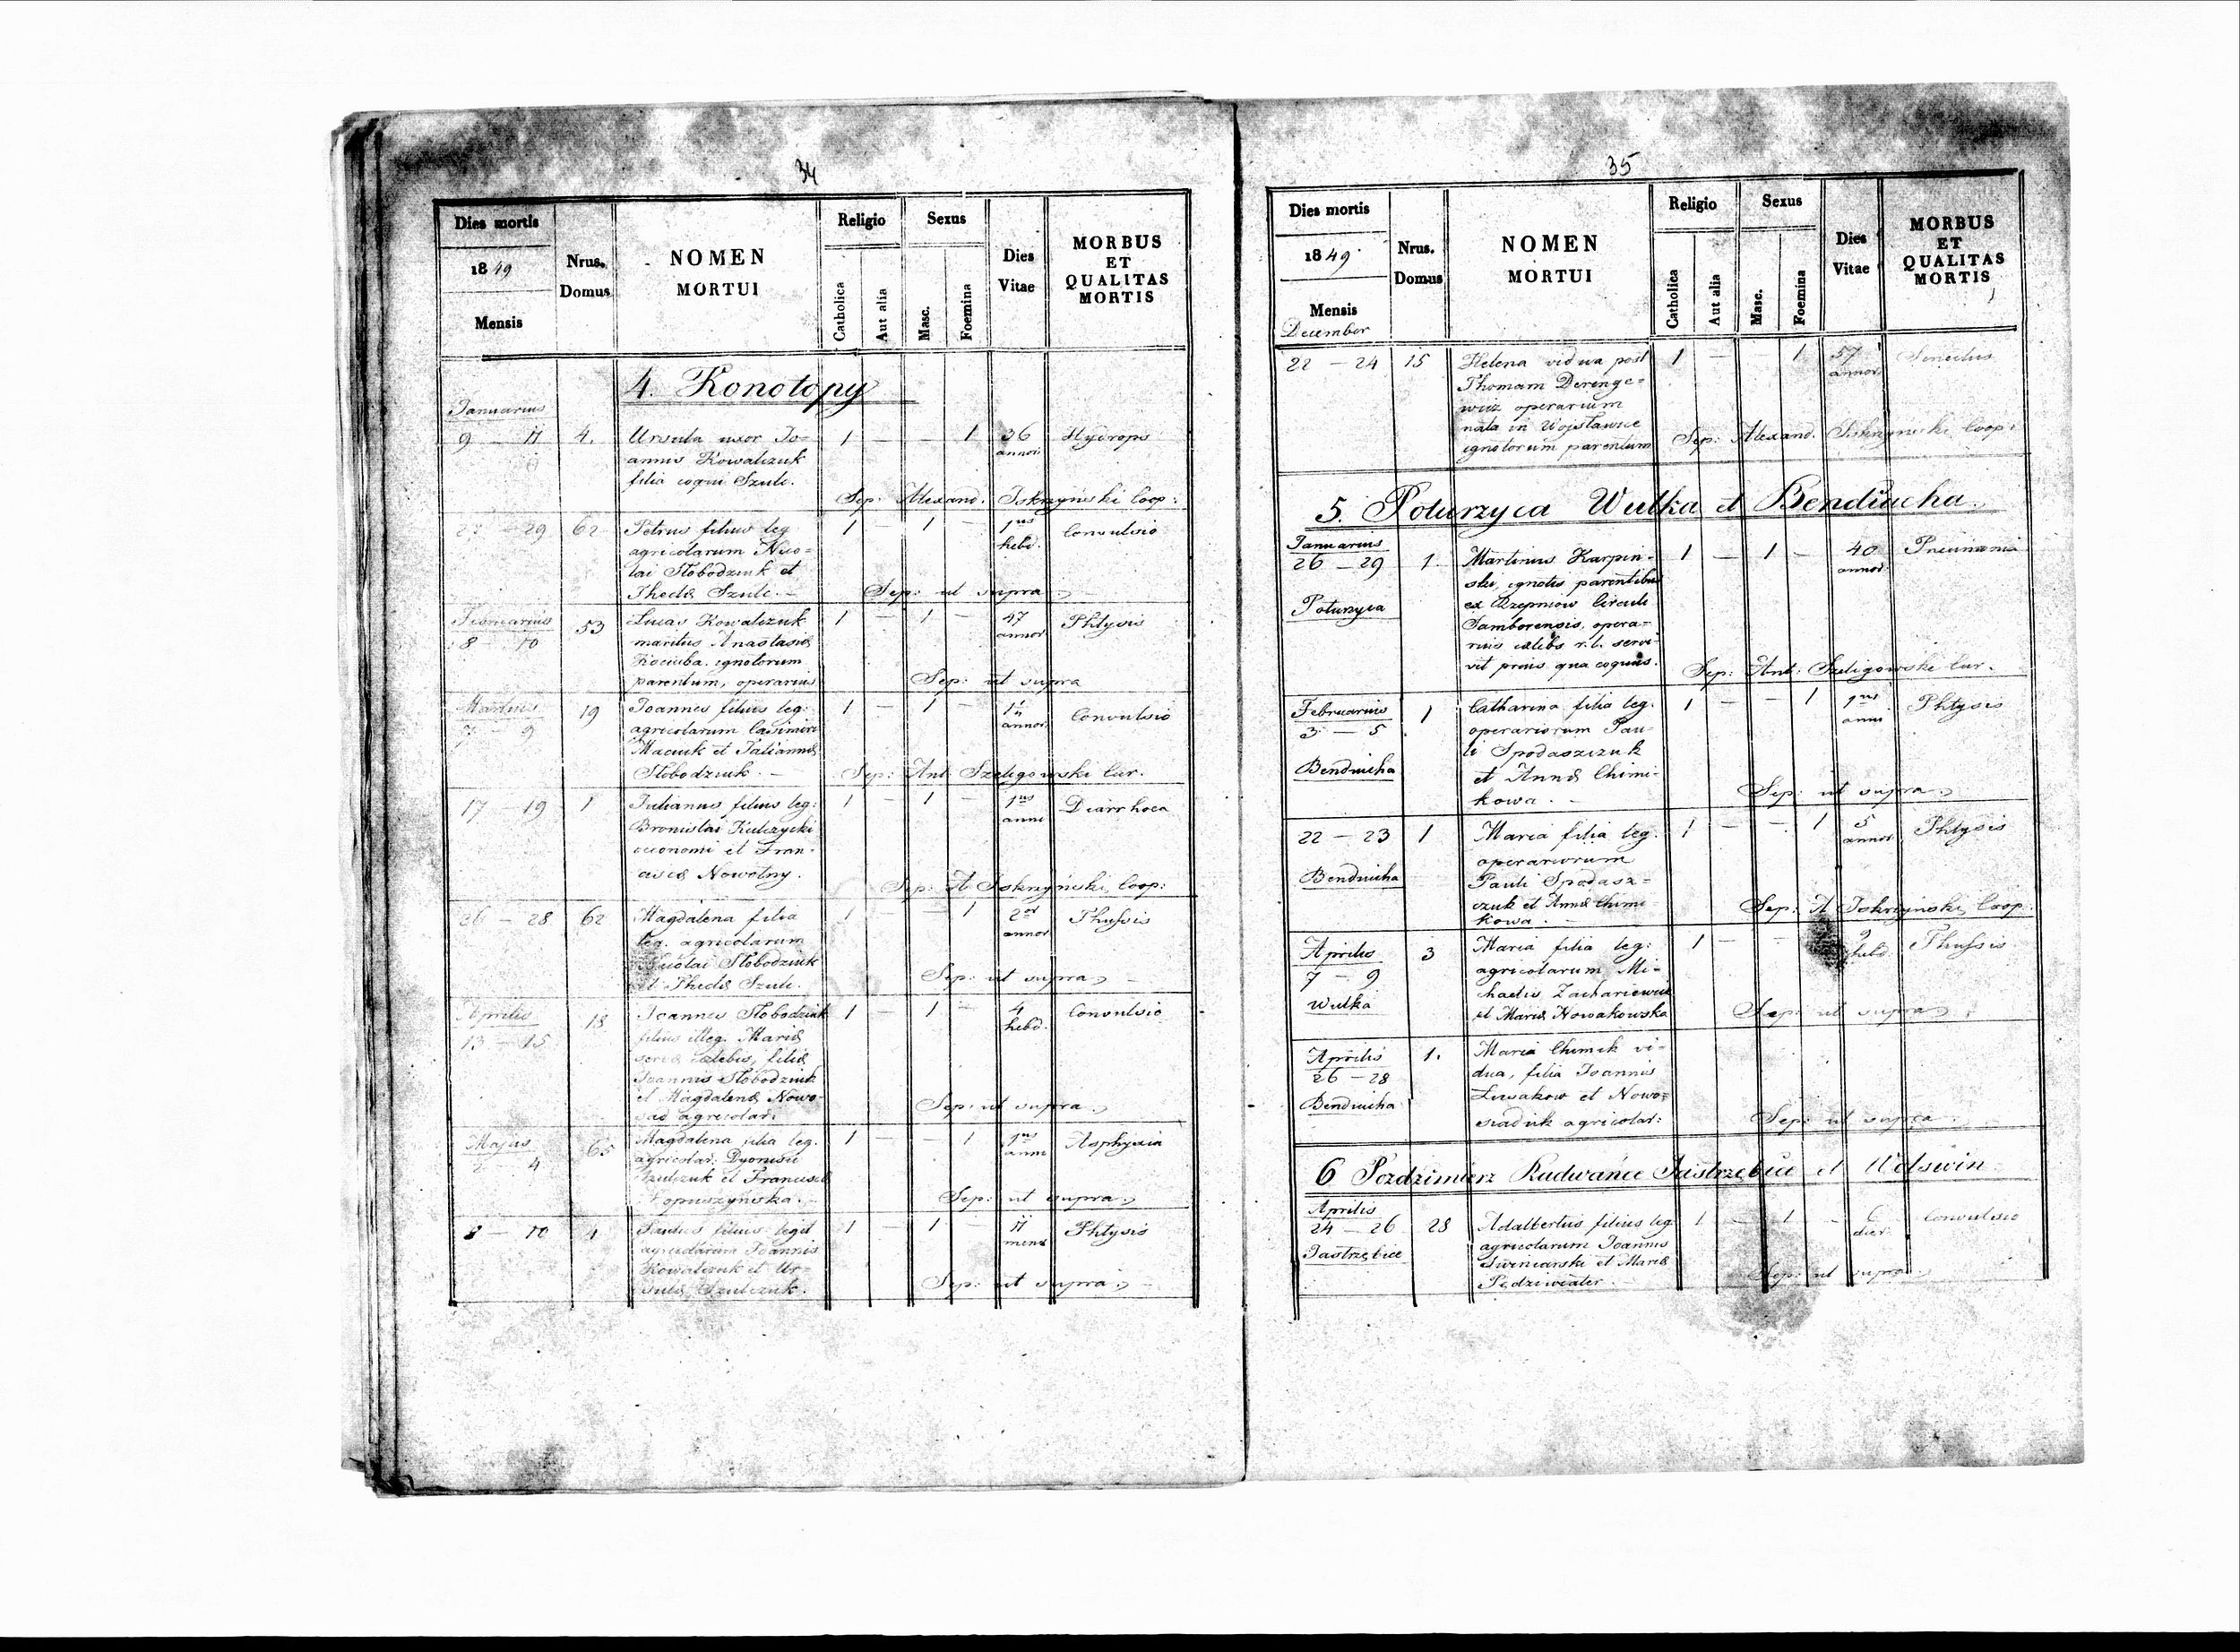 34
Dies mortis
1849
Mensis
Nrus. Domus
NOMEN MORTUI
Religio
Catholica
Aut alia
Sexus
Masc.
Foemina
Dies Vitae
MORBUS ET QUALITAS MORTIS
4. Konotopy
Januarius
9 — 11 4. Ursula uxor Jo= 1 — — 1 36 Hydrops
annis Kowalczuk annor
filia coqui Szulc.
Sep: Alexand. Iskrzyński Coop:
27 — 29 62 Petrus filius leg 1 — 1 — 1us Convulsio
agricolarum Nico= hebd.
lai Słobodziuk et
Thecla Szulc. —
Sep: ut supra
Februarius
8 — 10 53 Lucas Kowalczuk 1 — 1 — 47 Phtysis
maritus Anastasiæ annor
Kociuba. ignotorum
parentum, operarius
Sep: ut supra
Martius
7 — 9 19 Joannes filius leg: 1 — 1 — Convulsio
agricolarum Casimiri annor.
Maciuk et Tatiannæ
Słobodziuk. —
Sep: Ant Szeligowski Cur.
17 — 19 1 Julianus filius leg: 1 — 1 — 1us Diarrhoea
Bronislai Kulczycki anni
oeconomi et Fran=
ciscæ Nowotny.
Sep: A Iskrzyński, Coop:
26 — 28 62 Magdalena filia 1 1 2or Thussis
leg. agricolarum annor
Nicolai Słobodziuk
et Theclæ Szulc.
Sep: ut supra
Aprilis
13 — 15 18 Joannes Słobodziuk 1 — 1 — 4 Convulsio
filius illeg. Mariæ hebd.
cælebis, filiæ
Joannis Słobodziuk
et Magdalenæ Nowo
sad agricolar:
Sep: ut supra
Majus
2 — 4 65 Magdalena filia leg. 1 — 1 1us Asphyxia
agricolar: Dyonisii anni
et Franciscæ
Łopuszyńska. —
Sep: ut supra
8 — 10 4 Paulus filius legit 1 — 1 11 Phtysis
agricolarum Joannis mens
Kowalczuk et Ur=
sulæ Szulczuk.
Sep: ut supra
35
Dies mortis
1849
Mensis
December
Nrus. Domus
NOMEN MORTUI
Religio
Catholica
Aut alia
Sexus
Masc.
Foemina
Dies Vitae
MORBUS ET QUALITAS MORTIS
22 — 24 15 Helena vidua post 1 — 1 57 Senectus
Thomam Derenge= annor
wicz operarium
nata in Wojsławice
ignotorum parentum
Sep: Alexand. Iskrzyński Coop:
5. Poturzyca Wulka et Bendiucha.
Januarius
26 — 29 1. Martinus Karpin= 1 — 1 — 40 Pneumonia
ski, ignotis parentibus annor.
Poturzyca ex Rzepniow Circuli
Samborensis, opera=
rius cælebs r. l. servi
vit prius qua coquus.
Sep: Ant: Szeligowski Cur.
Februarius
3 — 5 1 Catharina filia leg. 1 — — 1 1us Phtysis
operariorum Pau= anni
Bendiucha li Spodaszczuk
et Annæ Chimi=
kowa. —
Sep: ut supra
22 — 23 1 Maria filia leg. 1 — — 1 5 Phtysis
operariorum annor.
Bendiucha Pauli Spodasz=
czuk et Annæ Chimi
kowa. —
Sep: A Iskrzyński, Coop.
Aprilis
7 — 9 3 Maria filia leg: 1 — 9 Thussis
agricolarum Mi= hebd.
Wulka chaelis Zachariewicz
et Mariæ Nowakowska
Sep: ut supra
Aprilis
26 — 28 1. Maria Chimik vi=
dua, filia Joannis
Bendiucha Lusakow et Nowo=
siadiuk agricolar:
Sep: ut supra
6 Pozdzimierz Radwańce Jastrzębice et Wolswin
Aprilis
24 — 26 28 Adalbertus filius leg 1 — 1 — 6 Convulsio
agricolarum Joannis dier.
Jastrzębice Swiniarski et Mariæ
Pędziwiater. —
Sep: ut supra